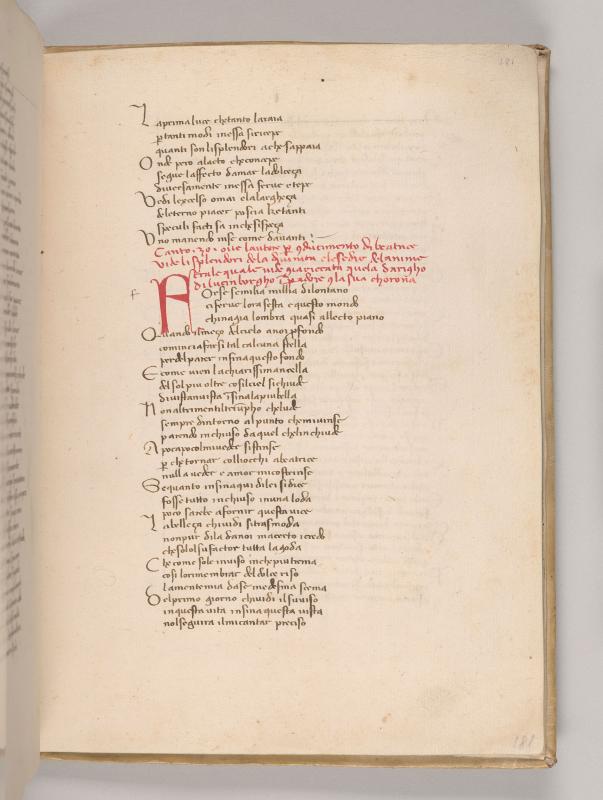 181
La prima luce che tanto laraia
per tanti modi inessa siricepe
quanti son lisplendori a che sappaia
Onde pero alacto che concepe
segue laffecto damar la dolceça
diversamente inessa ferve e tepe
Vedi lexcelso omai e la largheça
deleterno piacer poscia ke tanti
speculi facti sa inche sispeça
Uno manendo inse come davanti
Canto .30. ove lautore per conducimento di beatrice
vide li splendori de la divinita e le sedie del anime
 quale vide apparecchiata quela darigho
di lucinborgho con la sua chorona
f
Forse semilia millia di lontano
ci ferve lora sesta e questo mondo
china gia lombra quasi al lecto piano
Quando ilmeço delcielo anoi profondo
comincia farsi tal calcuna stella
perde il parer insina questo fondo
E come vien la chiarissima ancella
del sol piu oltre cosi lciel si chiude
di vista in vista insina la piu bella
Non altrimenti iltriumpho che lude
sempre dintorno al punto che mi vinse
parendo inchiuso da quel chelinchiude
Apocapoco lmivedere sistinse
perche tornar colliocchi a beatrice
nulla vedere e amor mi costrinse
Se quanto insina qui di lei si dice
fosse tutto inchiuso in una loda
poco sarebe afornir questa vice
La belleça chi vidi si trasmoda
non pur di la da noi ma certo i credo
che solo l suo factor tutta la goda
Che come sole inviso che piu trema
cosi lo rimembrar del dolce riso
la mente mia da se medesma scema
Del primo giorno chi vidi il suviso
in questa vita insina questa vista
nol seguira ilmi cantar preciso
181